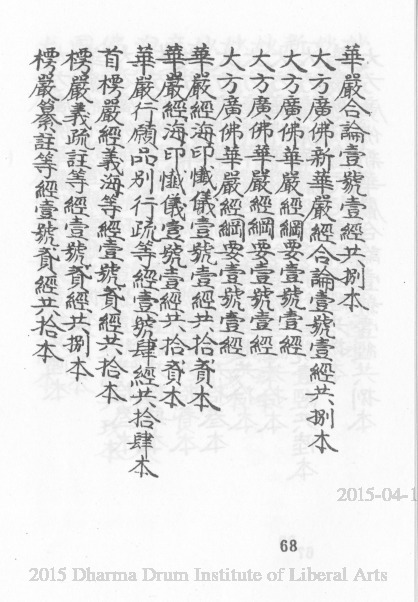 華嚴合論壹號壹經共捌本
大方廣佛新華嚴經合論壹號壹經共捌本
大方廣佛華嚴經綱要壹號壹經
大方廣佛華嚴經綱要壹號壹經
大方廣佛華嚴經綱要壹號壹經
華嚴經海印懺儀壹號壹經共拾貳本
華嚴經海印懺儀壹號壹經共拾貳本
華嚴行願品別行疏等經壹號肆經共拾肆本
首楞嚴經義海等經壹號貳經共拾本
楞嚴義疏註等經壹號貳經共捌本
楞嚴纂註等經壹號貳經共拾本
68
2015-04-1
2015 Dharma Drum Institute of Liberal Arts